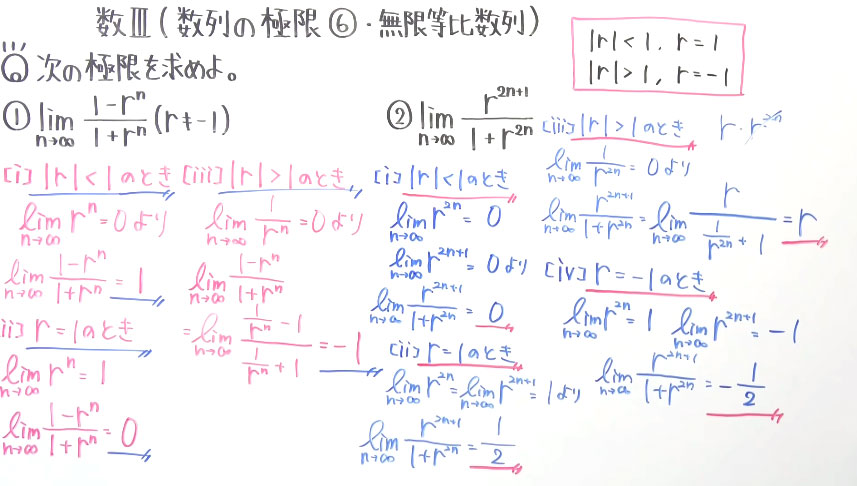 数Ⅲ(数列の極限⑥・無限等比数列)
|r|<1, r=1
|r|>1, r=-1
Q 次の極限を求めよ。
① lim_{n→∞} (1-r^n)/(1+r^n) (r≠-1)
[i] |r|<1のとき
lim_{n→∞} r^n=0より
lim_{n→∞} (1-r^n)/(1+r^n)=1
ii] r=1のとき
lim_{n→∞} r^n=1
lim_{n→∞} (1-r^n)/(1+r^n)=0
[iii] |r|>1のとき
lim_{n→∞} 1/r^n=0より
lim_{n→∞} (1-r^n)/(1+r^n)
=lim_{n→∞} (1/r^n -1)/(1/r^n +1)=-1
② lim_{n→∞} r^{2n+1}/(1+r^{2n})
[i] |r|<1のとき
lim_{n→∞} r^{2n}=0
lim_{n→∞} r^{2n+1}=0より
lim_{n→∞} r^{2n+1}/(1+r^{2n})=0
[ii] r=1のとき
lim_{n→∞} r^{2n}=lim_{n→∞} r^{2n+1}=1より
lim_{n→∞} r^{2n+1}/(1+r^{2n})=1/2
[iii] |r|>1のとき r・r^{2n}
lim_{n→∞} 1/r^{2n}=0より
lim_{n→∞} r^{2n+1}/(1+r^{2n})=lim_{n→∞} r/(1/r^{2n} +1)=r
[iv] r=-1のとき
lim_{n→∞} r^{2n}=1 lim_{n→∞} r^{2n+1}=-1
lim_{n→∞} r^{2n+1}/(1+r^{2n})=-1/2